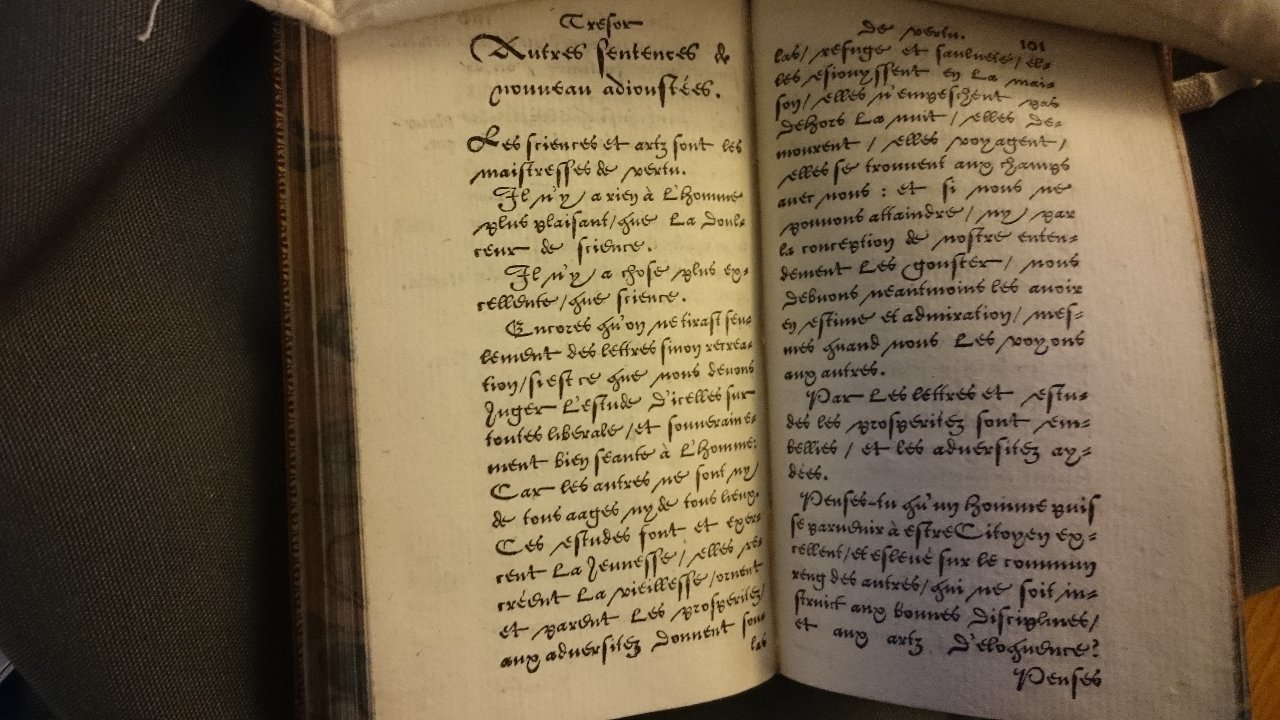 Tresor
Autres sentences de
nouveau adioustées.
Les sciences et artz sont les
maistresses de vertu.
Il n'y a rien à l'homme
plus plaisant/que la doul-
ceur de science.
Il n'y a chose plus ex-
cellente/que science.
Encores qu'on ne tirast seu-
lement des lettres sinon recrea-
tion/si est ce que nous deuons
Iuger l'estude d'icelles sur
toutes liberale/et souueraine-
ment bien seante à l'homme:
Car les autres ne sont ny
de tous aages ny de tous lieux.
Ces estudes sont et exer-
cent la Ieunesse/elles re-
créent la vieillesse/ornent
et parent les prosperitez/
aux aduersitez donnent sou-
las
de vertu. 101
las/refuge et saulueté/el-
les esiouyssent en la mai-
son/elles n'empeschent pas
dehors la nuit/elles de-
mourent/elles voyagent/
elles se trouuent aux champs
auec nous: et si nous ne
pouuons attaindre/ny par
la conception de nostre enten-
dement les gouster/nous
debuons neantmoins les auoir
en estime et admiration/mes-
mes quand nous les voyons
aux autres.
Par les lettres et estu-
des les prosperitez sont em-
bellies/et les aduersitez ay-
dées.
Penses-tu qu'un homme puis
se paruenir à estre Citoyen ex-
cellent/et esleué sur le commun
reng des autres/qui ne soit in-
struict aux bonnes disciplines/
et aux artz d'eloquence?
Penses